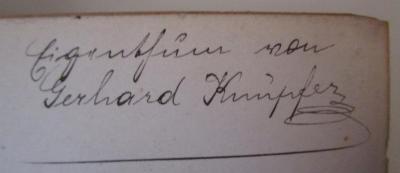 Eigenthum von
Gerhard Knüpfer